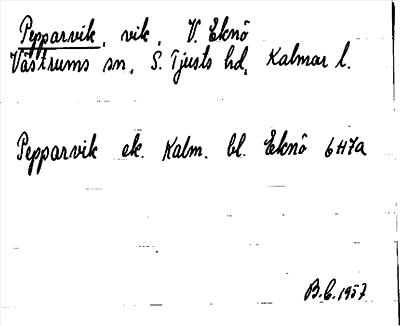 Pepparvik, vik, V. Eknö
Västrums sn, S. Tjusts hd, Kalmar l.
Pepparvik ek. Kalm. bl. Eknö 6H7a
B.C. 1957